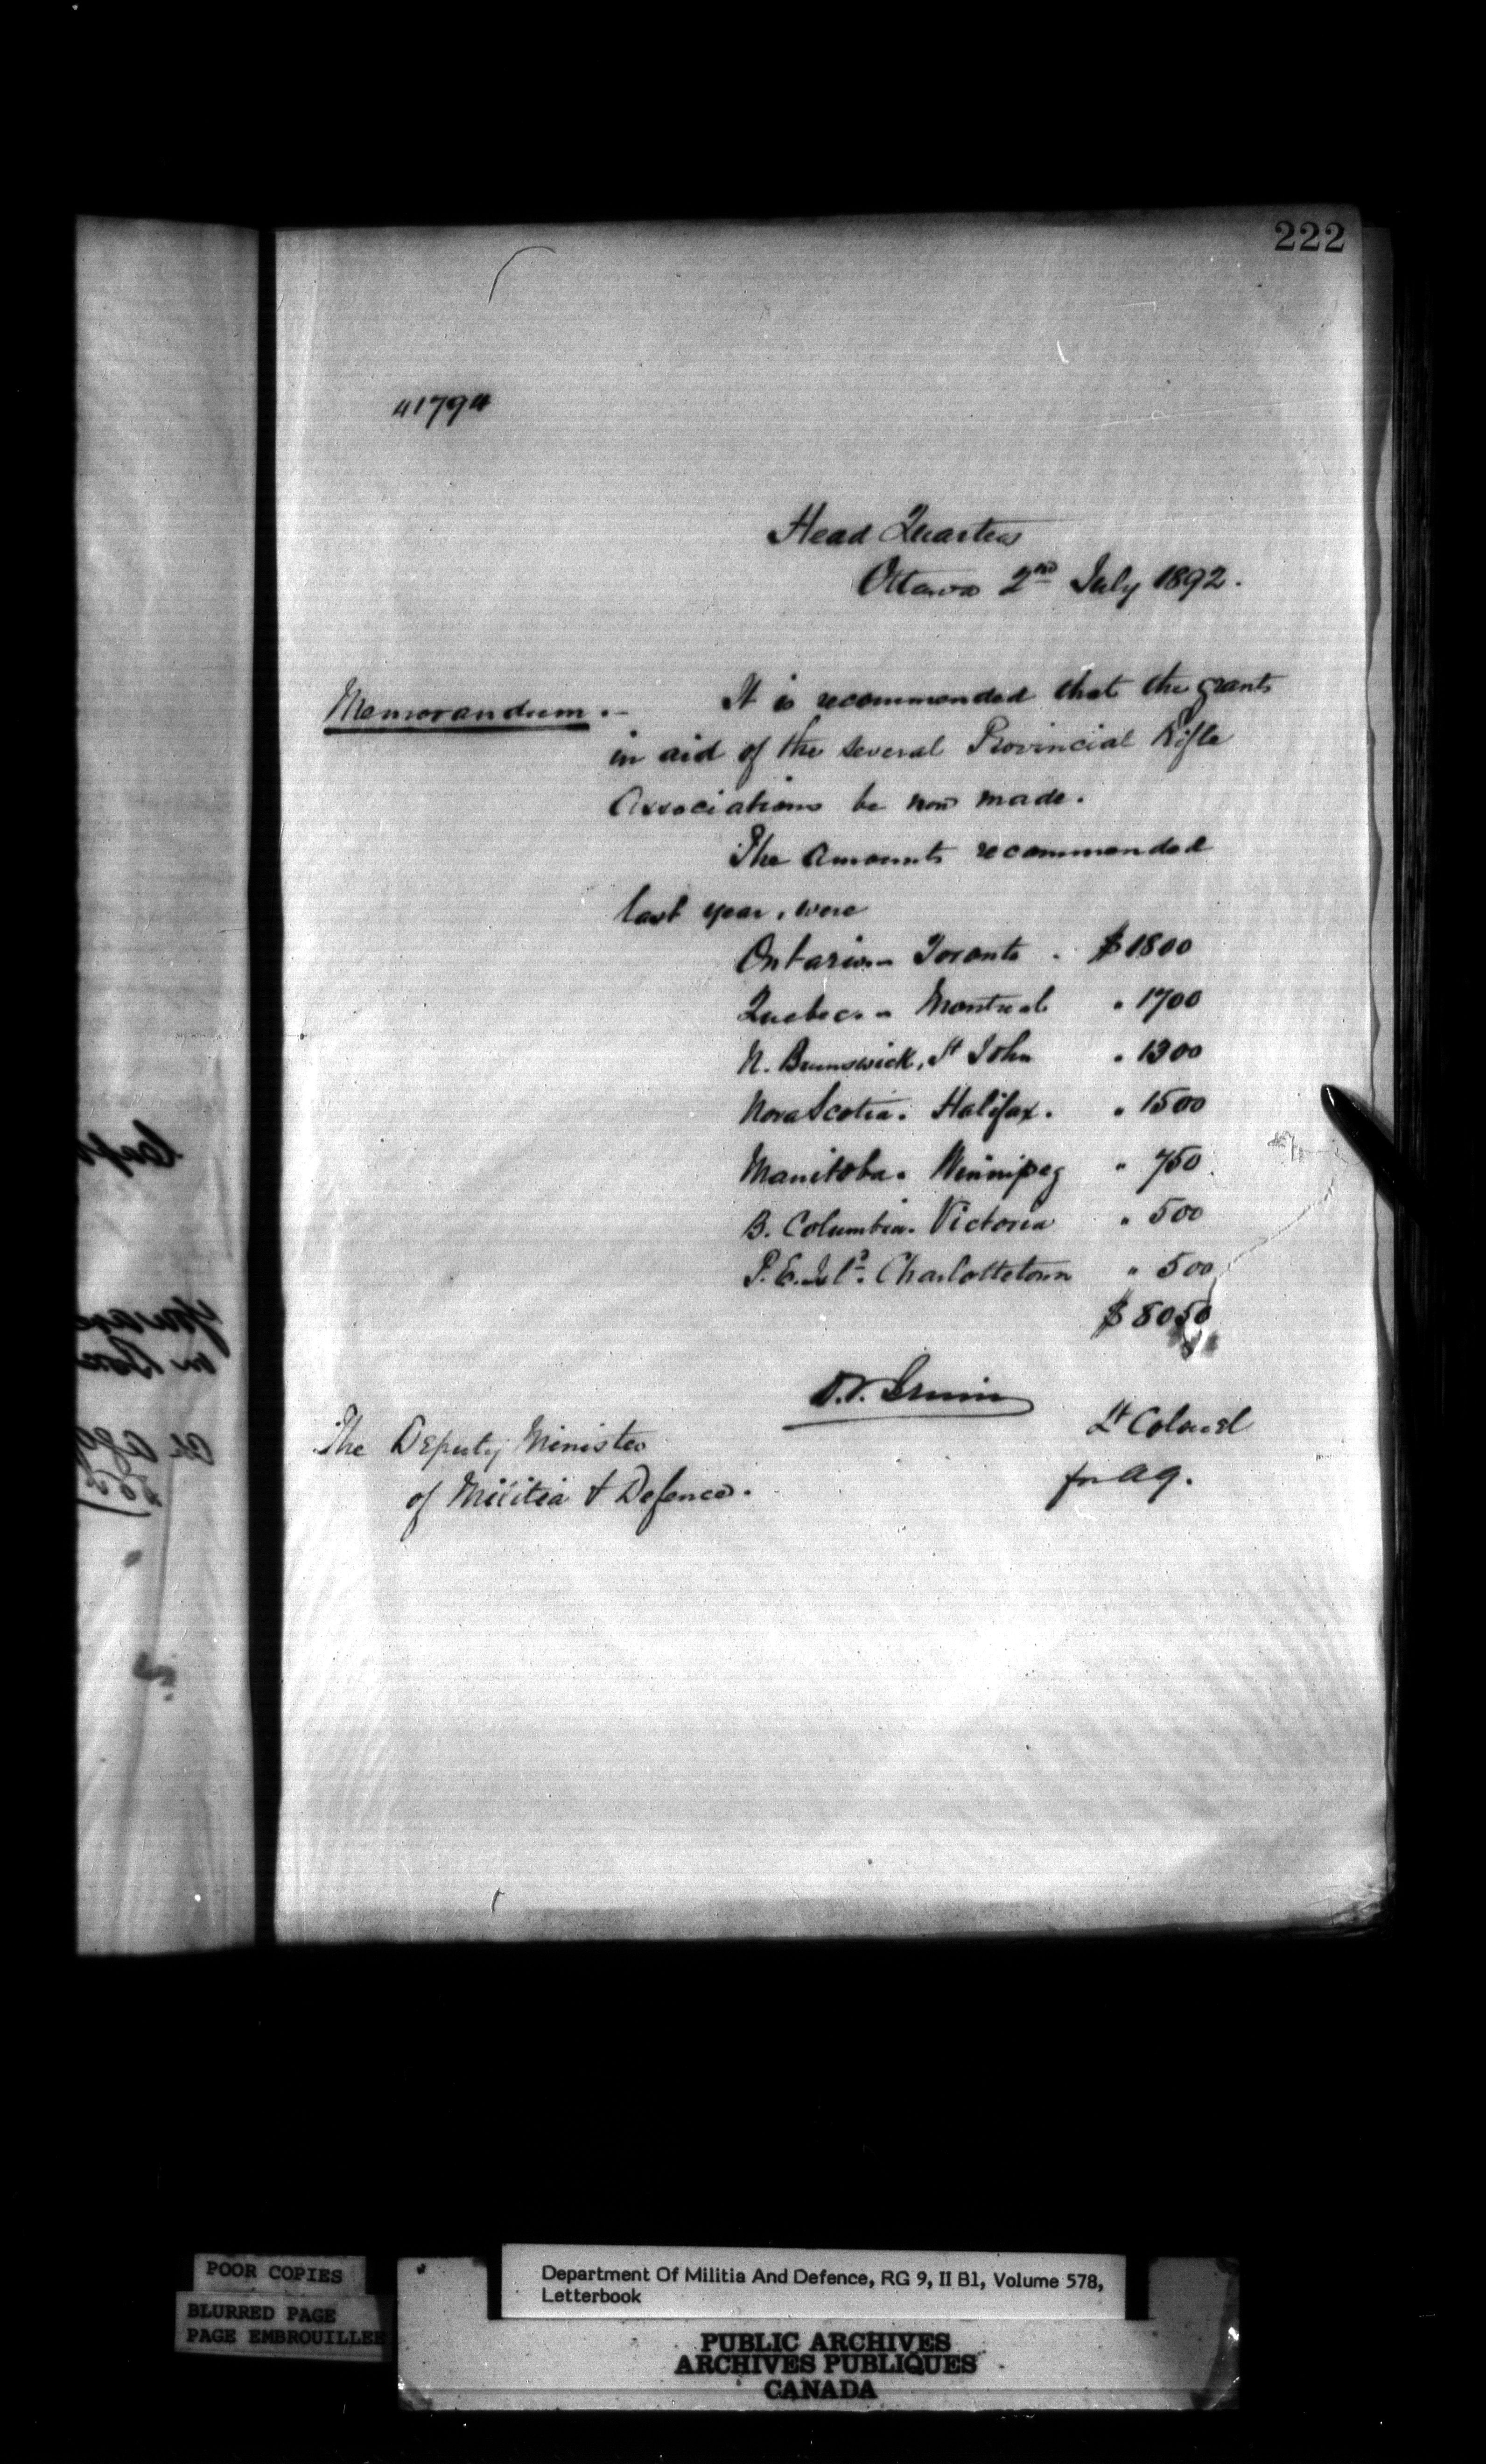 222
41794
Head Quarters
Ottawa 2nd July 1892.
Memorandum.- It is recommended that the grants
in aid of the several Provincial Rifle
Associations be now made.
The amounts recommended
last year, were
Ontario.- Toronto . $1800
Quebec. - Montreal " 1700
N. Brunswick, St John " 1300
Nova Scotia. Halifax. " 1500
Manitoba. Winnipeg " 750
B. Columbia. Victoria " 500
P.E.Isld. Charlottetown " 500
$8050
D.T. Irwin
Lt Colonel
for AG.
The Deputy Minister
of Militia & Defence.
POOR COPIES
BLURRED PAGE
PAGE EMBROUILLEE
Department Of Militia And Defence, RG 9, II B1, Volume 578,
Letterbook
PUBLIC ARCHIVES
ARCHIVES PUBLIQUES
CANADA